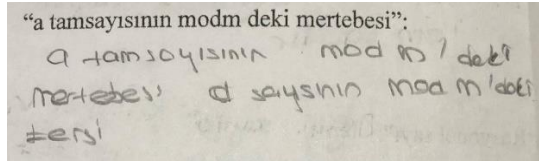 “a tamsayısının modm deki mertebesi”:
a tamsayısının mod m'deki
mertebesi d sayısının mod m'deki
tersi